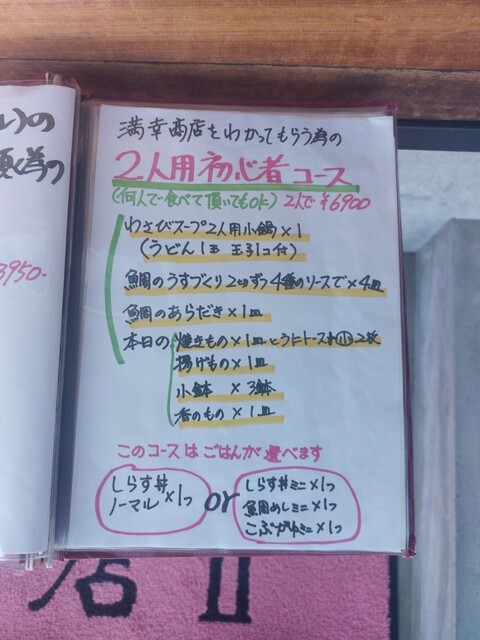 いの
為の
3950-
満幸商店をわかってもらう為の
2人用初心者コース
(何人で食べて頂いてもOK) 2人で ¥6900
わさびスープ2人用小鍋×1
(うどん1玉 玉子1コ付)
鯛のうすづくり2切ずつ4種のソースで×4皿
鯛のあらだき×1皿
本日の焼きもの×1皿とうにトースト小2枚
揚げもの×1皿
小鉢 ×3鉢
香のもの×1皿
このコースはごはんが選べます
しらす丼
ノーマル×1つ
or
しらす丼ミニ×1つ
鯛めしミニ×1つ
こぶがゆミニ×1つ
店 II